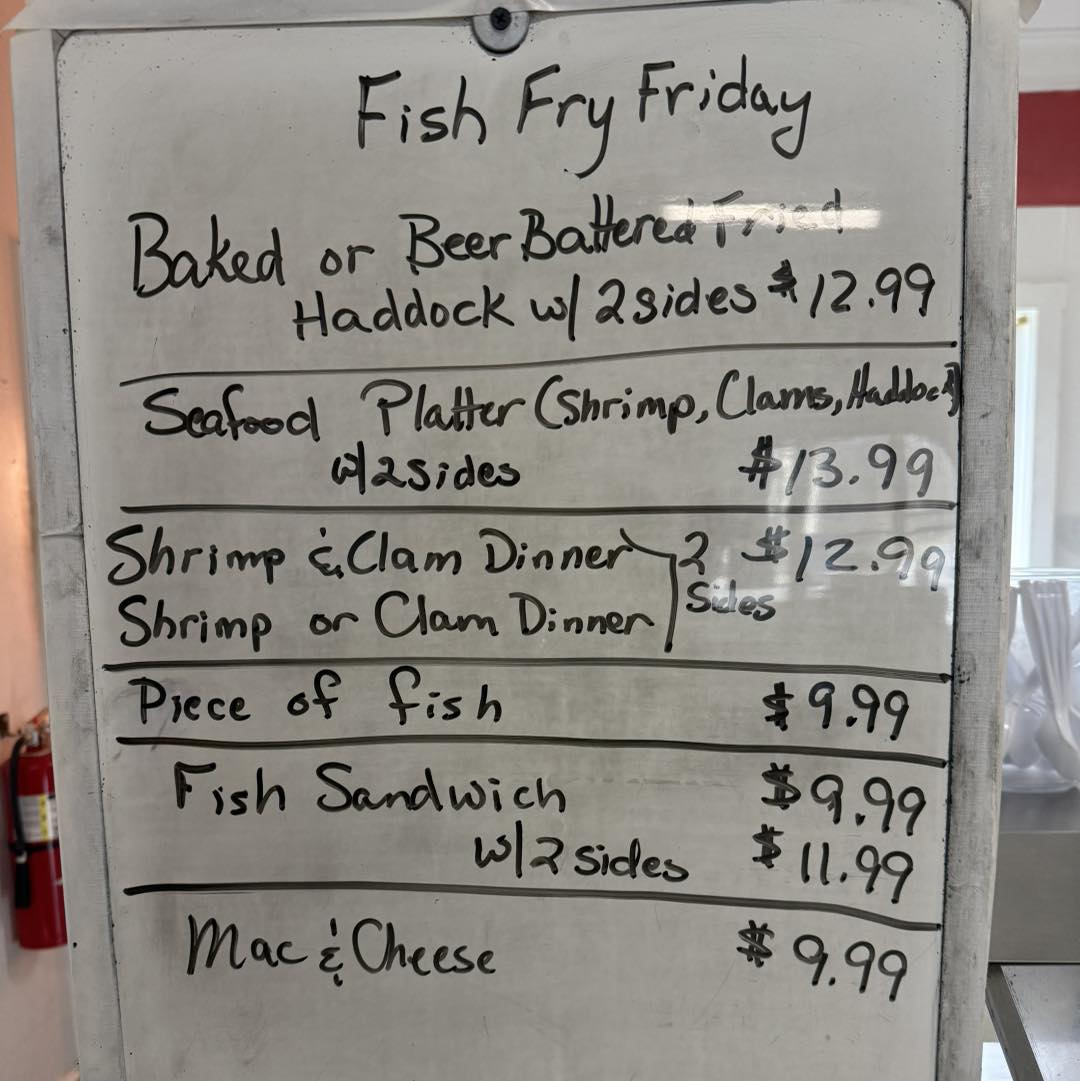 Fish Fry Friday
Baked or Beer Battered Fried
Haddock w/ 2 sides $12.99
Seafood Platter (Shrimp, Clams, Haddock)
w/ 2 sides $13.99
Shrimp & Clam Dinner 2 $12.99
Shrimp or Clam Dinner Sides
Piece of fish $9.99
Fish Sandwich $9.99
w/ 2 sides $11.99
Mac & Cheese $9.99